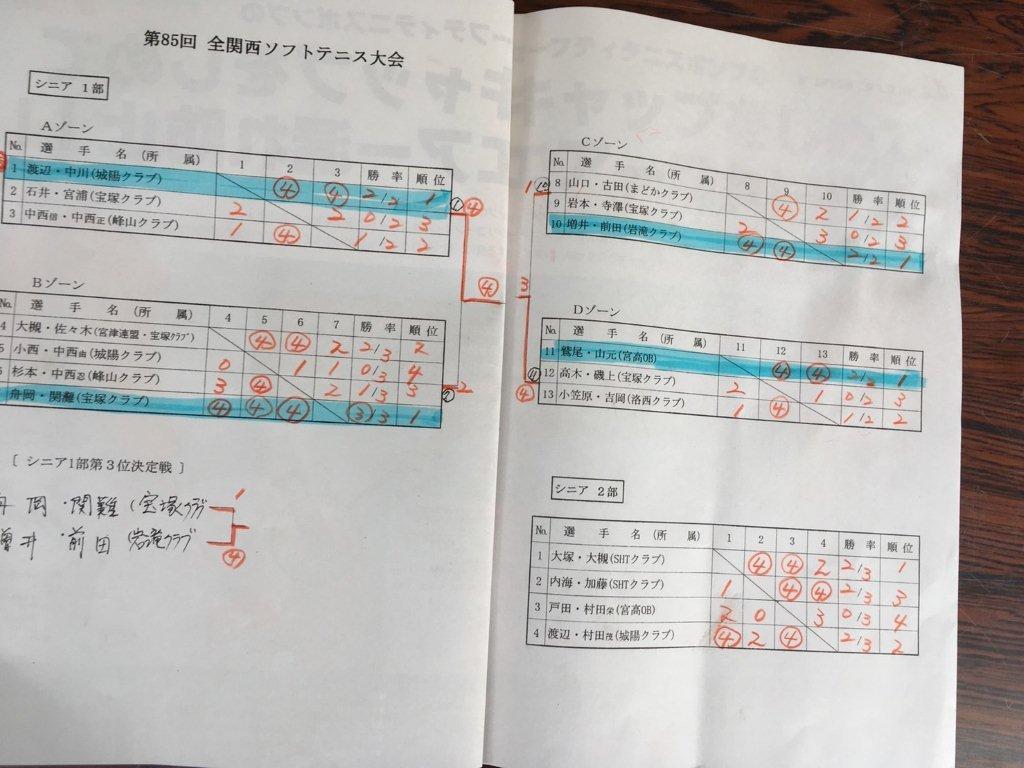 第85回 全関西ソフトテニス大会
シニア 1部
Aゾーン
No. 選 手 名 (所 属) 1 2 3 勝 率 順 位
1 渡辺・中川(城陽クラブ) ④ ④ 2/2 1
2 石井・宮浦(宝塚クラブ) 2 2 0/2 3
3 中西信・中西正(峰山クラブ) 1 ④ 1/2 2
① ④
④
Bゾーン
No. 選 手 名 (所 属) 4 5 6 7 勝 率 順 位
4 大槻・佐々木(宮津連盟・宝塚クラブ) ④ ④ 2 2/3 2
5 小西・中西由(城陽クラブ) 0 1 1 0/3 4
杉本・中西忍(峰山クラブ) 3 ④ 2 1/3 3
舟岡・関難(宝塚クラブ) ④ ④ ④ 3/3 1
⑦ 2
[ シニア1部第3位決定戦 ]
舟岡・関難(宝塚クラブ 1
増井・前田 岩滝クラブ ④
Cゾーン
No. 選 手 名 (所 属) 8 9 10 勝 率 順 位
8 山口・古田(まどかクラブ) ④ 2 1/2 2
9 岩本・寺澤(宝塚クラブ) 2 3 0/2 3
10 増井・前田(岩滝クラブ) ④ ④ 2/2 1
1 ⑩
3
Dゾーン
No. 選 手 名 (所 属) 11 12 13 勝 率 順 位
11 鷲尾・山元(宮高OB) ④ ④ 2/2 1
12 高木・磯上(宝塚クラブ) 2 1 0/2 3
13 小笠原・吉岡(洛西クラブ) 1 ④ 1/2 2
④
シニア 2部
No. 選 手 名 (所 属) 1 2 3 4 勝 率 順 位
1 大塚・大槻(SHTクラブ) ④ ④ 2 2/3 1
2 内海・加藤(SHTクラブ) 1 ④ ④ 2/3 3
3 戸田・村田栄(宮高OB) 2 0 3 0/3 4
4 渡辺・村田茂(城陽クラブ) ④ 2 ④ 2/3 2